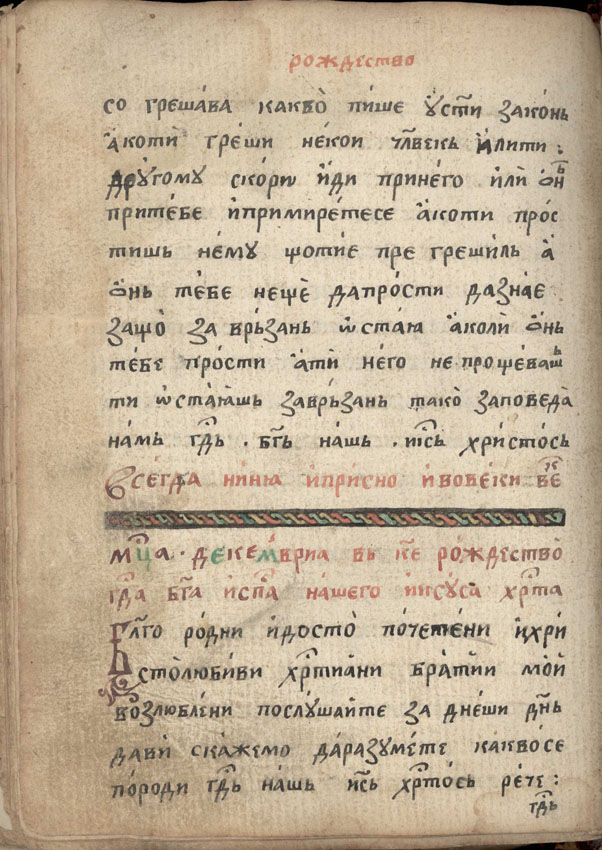 рождество
со греша́ва каквѐ пише ѹ҆сти̑ зако́нь
а҆коти̏ гре́ши не́кои чл҃векь и҆лити :
дрꙋ́гомꙋ скорѡ и҆ди принего и҆лѝ ѻ҆нь
прите́бе и҆примире́тесе а҆коти прос
тишь не́мꙋ щоти́е пре греши́ль а҆
ѻ҆нь те́бе не́щѐ дапро́сти дазна́е
защо̀ за връ́зань ѡ҆ста́ꙗ а҆колѝ ѻ҆нь
те́бе про́сти а҆тѝ не́го не проще́вашь
ти ѡ҆ста́ꙗшь завръ́зань тако̀ запове́да
на́мь гд҃ь · бг҃ь нашь · іс҃ь христо́сь
Всегда нинꙗ и҆присно и҆вовеки ве҃к
мц҃а · деке́мвриа вь к҃е рождество̀
гд҃а бг҃а и҆сп҃а нашего иису́са хр҃та
Бл҃го ро́дни и҆досто̀ почете́ни и҆хри
столюби́ви хр҃тиа́ни бра́тии мо́й
возлюбле́ни послу́шайте за дне́ши дн҃ь
давѝ ска́жемо да́разуме́те какво́се
по́роди гд҃ь нашь іс҃ь хр҃то́сь ре́че :
гд҃ь